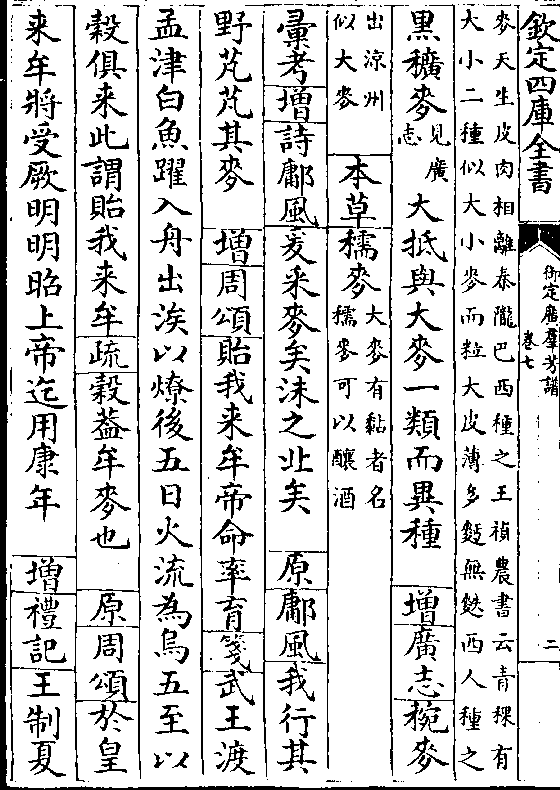 欽定四庫全書
御定廣羣芳譜
卷七
二
麥天生皮肉相離秦隴巴西種之王禎農書云青稞有
大小二種似大小麥而粒大皮薄多麪無麩西人種之
黒穬麥
見廣
志
大抵與大麥一類而異種
增廣志
椀麥
出涼州
似大麥
本草
穤麥
大麥有黏者名
穤麥可以釀酒
彚考
增詩鄘風
爰采麥矣沬之北矣
原鄘風
我行其
野芃芃其麥
增周頌
貽我来牟帝命率育
箋
武王渡
孟津白魚躍入舟出涘以燎後五日火流為烏五至以
穀俱来此謂貽我来牟
疏
穀蓋牟麥也
原周頌
於皇
来牟將受厥明明昭上帝迄用康年
增禮記
王制夏